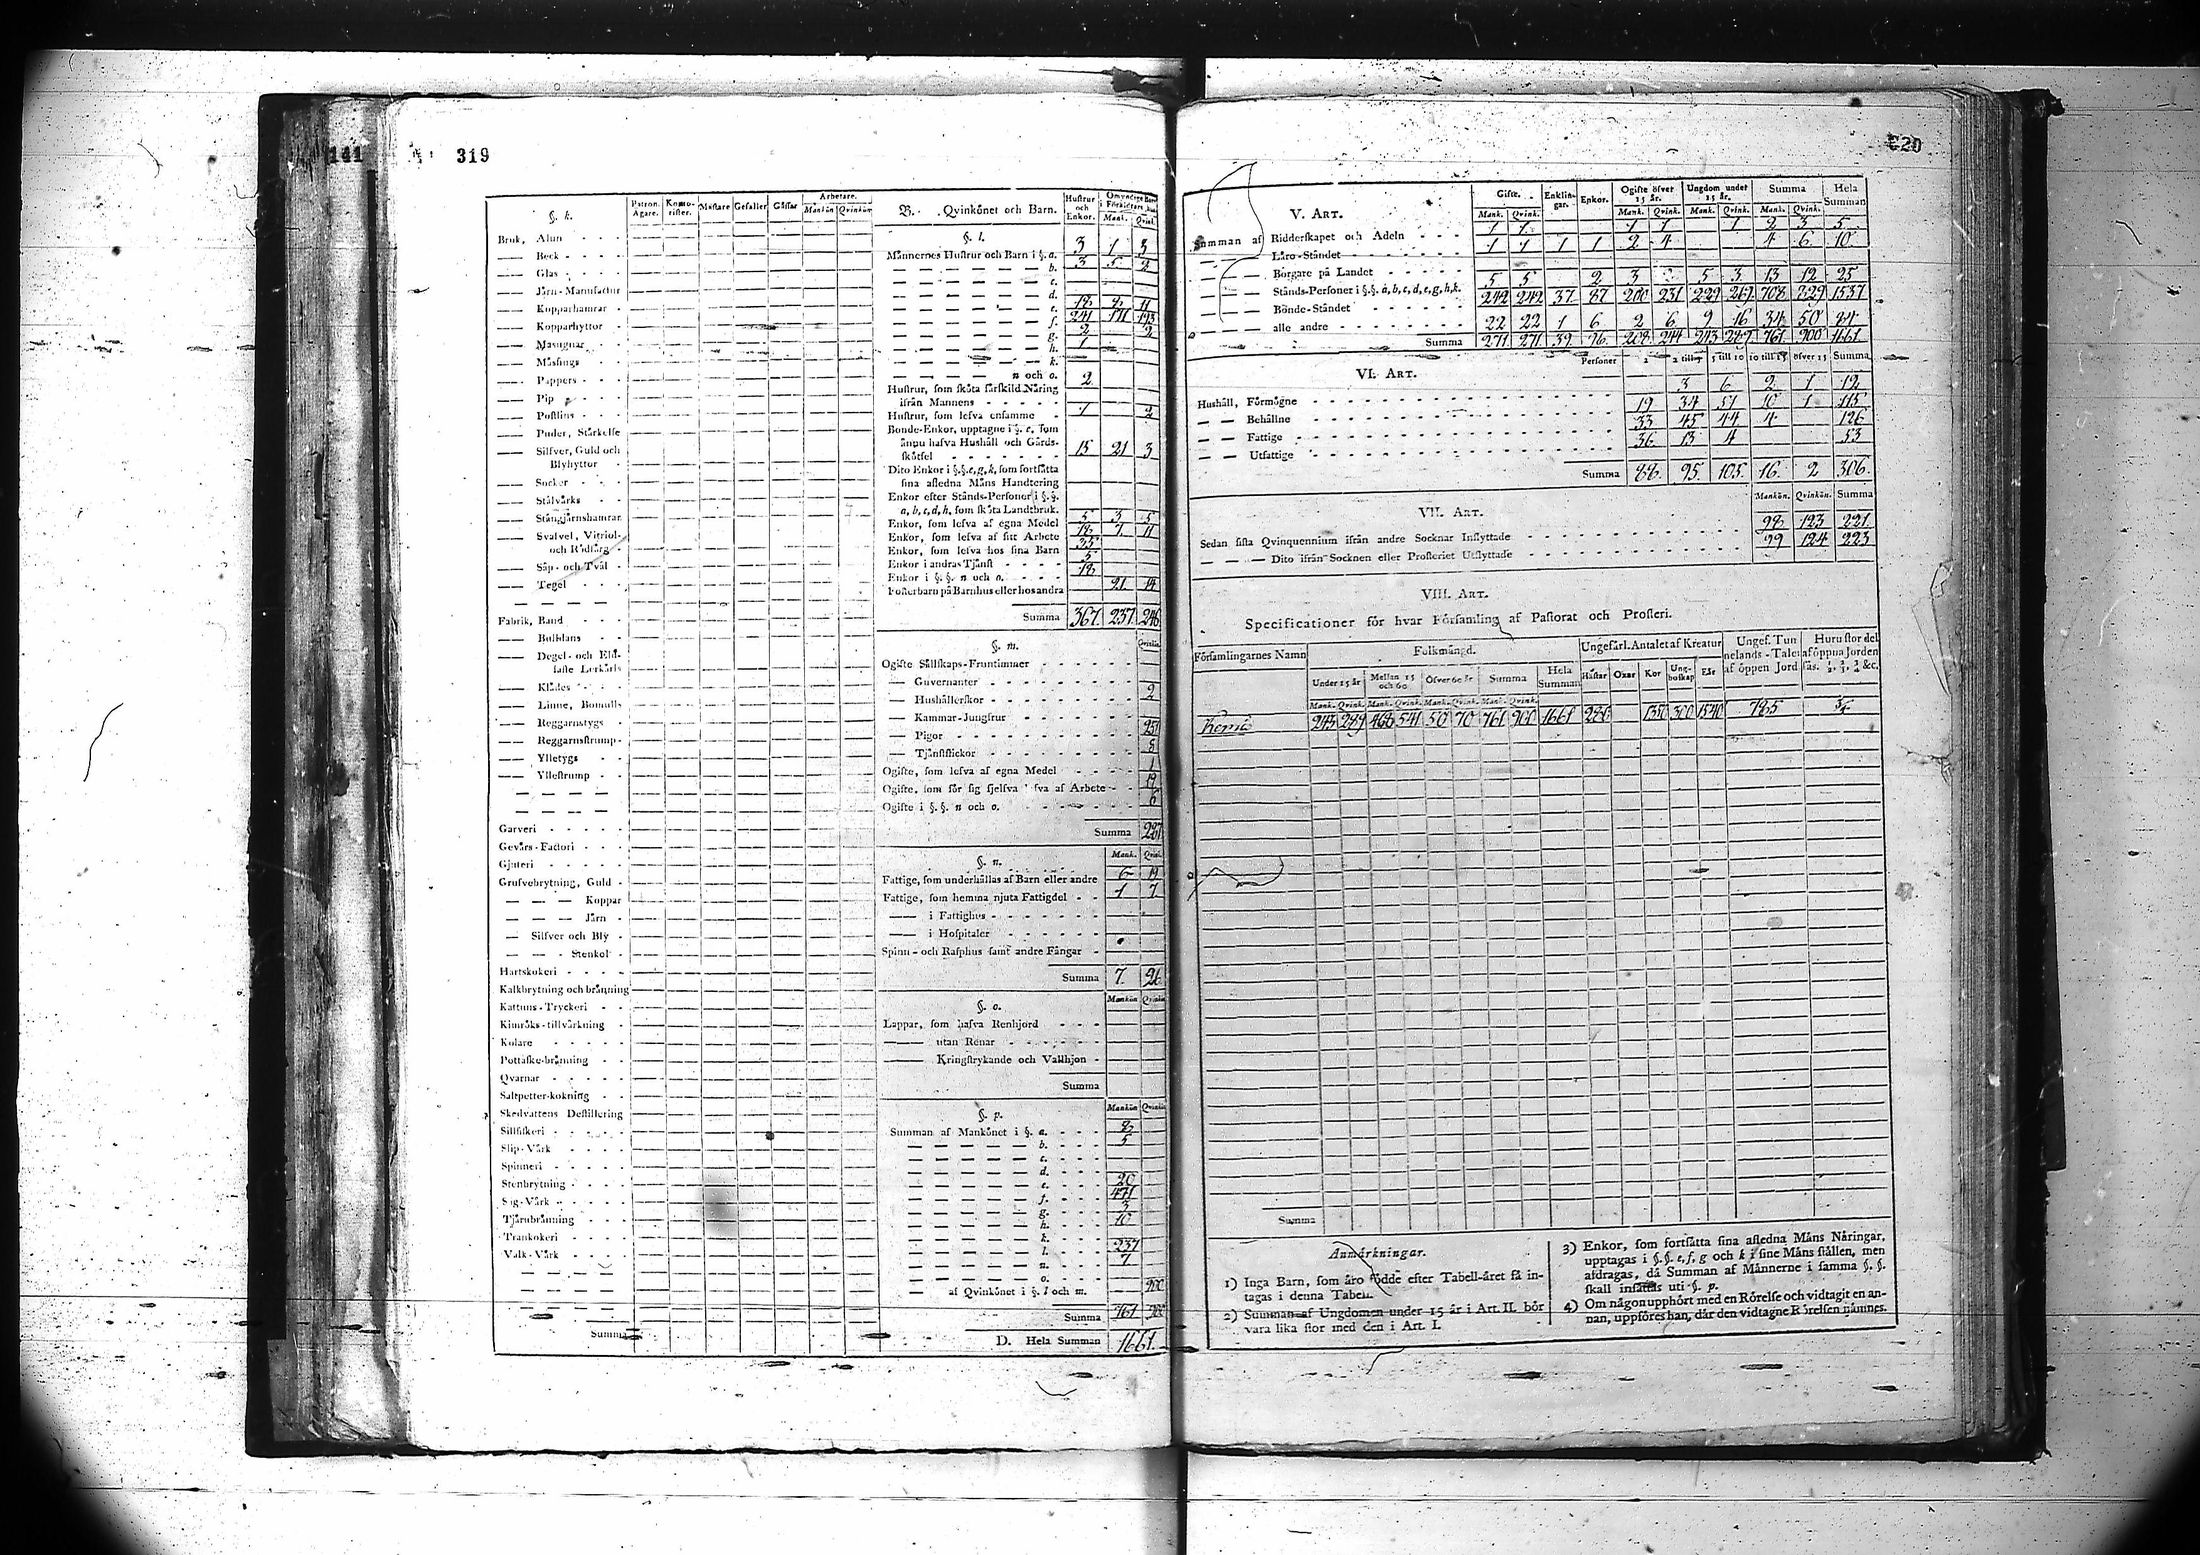 141
319
§. k.
Patron. Ägare. Mästare Gesäller Gåssar Arbetare. Mankön Qvinkön
Bruk, Alun
Beck
Glas
Järn-Manufactur
Kopparhamrar
Kopparhyttor
Masugnar
Mäsings
Pappers
Pip
Postlins
Puder, Stärkelse
Silfver, Guld och
Blyhyttor
Socker
Stålvärks
Stångjärnshamrar
Svafvel, Vitriol-
och Rödfärg
Såp- och Tväl
Tegel
Fabrik, Band
Degel- och Eld-
Klädes
Linne, Bomulls
Reggarnstygs
Reggarnstrump-
Ylletygs
Yllestrump
Garveri
Gevärs-Factori
Gjuteri
Grufvebrytning, Guld
Koppar
Järn
Silfver och Bly
Stenkol
Hartskokeri
Kalkbrytning och bränning
Kattuns-Tryckeri
Kimröks-tillvärkning
Kolare
Pottaske-bränning
Qvarnar
Saltpetter-kokning
Skedvattens Destillering
Sillfiskeri
Slip-Värk
Spinneri
Stenbrytning
Såg-Värk
Tjärubränning
Trankokeri
Valk-Värk
Summa
B. Qvinkönet och Barn. Hustrur och Enkor.
§. l.
Männernes Hustrur och Barn i §. a. 3 1 3
b. 3 5 2
c.
d.
e. 18 8 11
f. 241 171 193
g. 2 2
h. 1
k.
n och o. 2
Hustrur, som sköta särskild Näring
ifrån Mannens
Hustrur, som lefva ensamme 1 2
Bonde-Enkor, upptagne i §. e. som
ännu hafva Hushåll och Gårds-
skötsel 15 21 3
Dito Enkor i §.§. e, g, k, som fortsätta
sina afledna Mäns Handtering
Enkor efter Stånds-Personer i §.§.
a, b, c, d, h, som sköta Landtbruk.
Enkor, som lefva af egna Medel 5 3 5
Enkor, som lefva af sitt Arbete 18 7 11
Enkor, som lefva hos sina Barn 35
Enkor i andras Tjänst 5
Enkor i §.§. n och o. 18
Fosterbarn på Barnhus eller hos andra 21 14
Summa 367. 237. 246
§. m.
Ogifte Sällskaps-Fruntimmer
Guvernanter
Hushällerskor 2
Kammar-Jungfrur
Pigor 251
Tjänstflickor 8
Ogifte, som lefva af egna Medel 1
Ogifte, som för sig sjelfva lefva af Arbete 19
Ogifte i §.§. n och o. 6
Summa 287
§. n. Mank. Qvink.
Fattige, som underhållas af Barn eller andre 6 19
Fattige, som hemma njuta Fattigdel 1 7
i Fattighus
i Hospitaler
Spinn- och Rasphus samt andre Fångar
Summa 7. 26
§. o. Mankön Qvinkön
Lappar, som hafva Renhjord
utan Renar
Kringstrykande och Vallhjon
Summa
§. p. Mankön Qvinkön
Summan af Mankönet i §. a. 8
b. 5
c.
d.
e. 20
f. 471
g. 3
h. 10
k.
l. 237
n. 7
o.
af Qvinkönet i §. l och m. 900
Summa 761 900
D. Hela Summan 1661.
320
V. ART. Gifte. Enklingar. Enkor. Ogifte öfver 15 år. Ungdom under 15 år. Summa Hela Summan
Mank. Qvink. Mank. Qvink. Mank. Qvink. Mank. Qvink.
Summan af Ridderskapet och Adeln 1 1 1 1 1 2 3 5
Läro-Ståndet 1 1 1 1 2 4 4 6 10
Borgare på Landet
Stånds-Personer i §.§. a, b, c, d, e, g, h, k. 5 5 2 3 5 3 13 12 25
Bönde-Ståndet 242 242 37 87 200 231 229 267 708 829 1537
alle andre 22 22 1 6 2 6 9 16 34 50 84
Summa 271 271 39. 96. 208 244 243 289 761 900 1661
VI. ART. Personer 2 2 till 5 5 till 10 10 till 15 öfver 15 Summa
Hushåll, Förmögne 3 6 2 1 12
Behållne 19 34 51 10 1 115
Fattige 33 45 44 4 126
Utfattige 36 13 4 53
Summa 88. 95. 105. 16. 2 306.
VII. ART. Mankön. Qvinkön. Summa
Sedan sista Qvinquennium ifrån andre Socknar Inflyttade 98 123 221
Dito ifrån Socknen eller Prosteriet Utflyttade 99 124 223
VIII. ART.
Specificationer för hvar Församling af Pastorat och Prosteri.
Församlingarnes Namn Folkmängd. Ungefärl. Antalet af Kreatur Ungef. Tunnelands-Talet af öppen Jord Huru stor del af öppna Jorden sås. ½, ⅔, ¾ &c.
Under 15 år Mellan 15 och 60 Öfver 60 år Summa Hela Summan Hästar Oxar Kor Ungboskap Får
Mank. Qvink. Mank. Qvink. Mank. Qvink. Mank. Qvink.
243 289 468 541 50 70 761 900 1661 280 1350 300 1540 785
Summa
Anmärkningar.
1) Inga Barn, som äro födde efter Tabell-året få in-
tagas i denna Tabell.
2) Summan af Ungdomen under 15 år i Art. II. bör
vara lika stor med den i Art. I.
3) Enkor, som fortsätta sina afledna Mäns Näringar,
upptagas i §.§. e, f, g och k i sine Mäns ställen, men
afdragas, då Summan af Männerne i samma §. §.
skall insättas uti §. p.
4) Om någon upphört med en Rörelse och vidtagit en an-
nan, uppföres han, där den vidtagne Rörelsen nämnes.